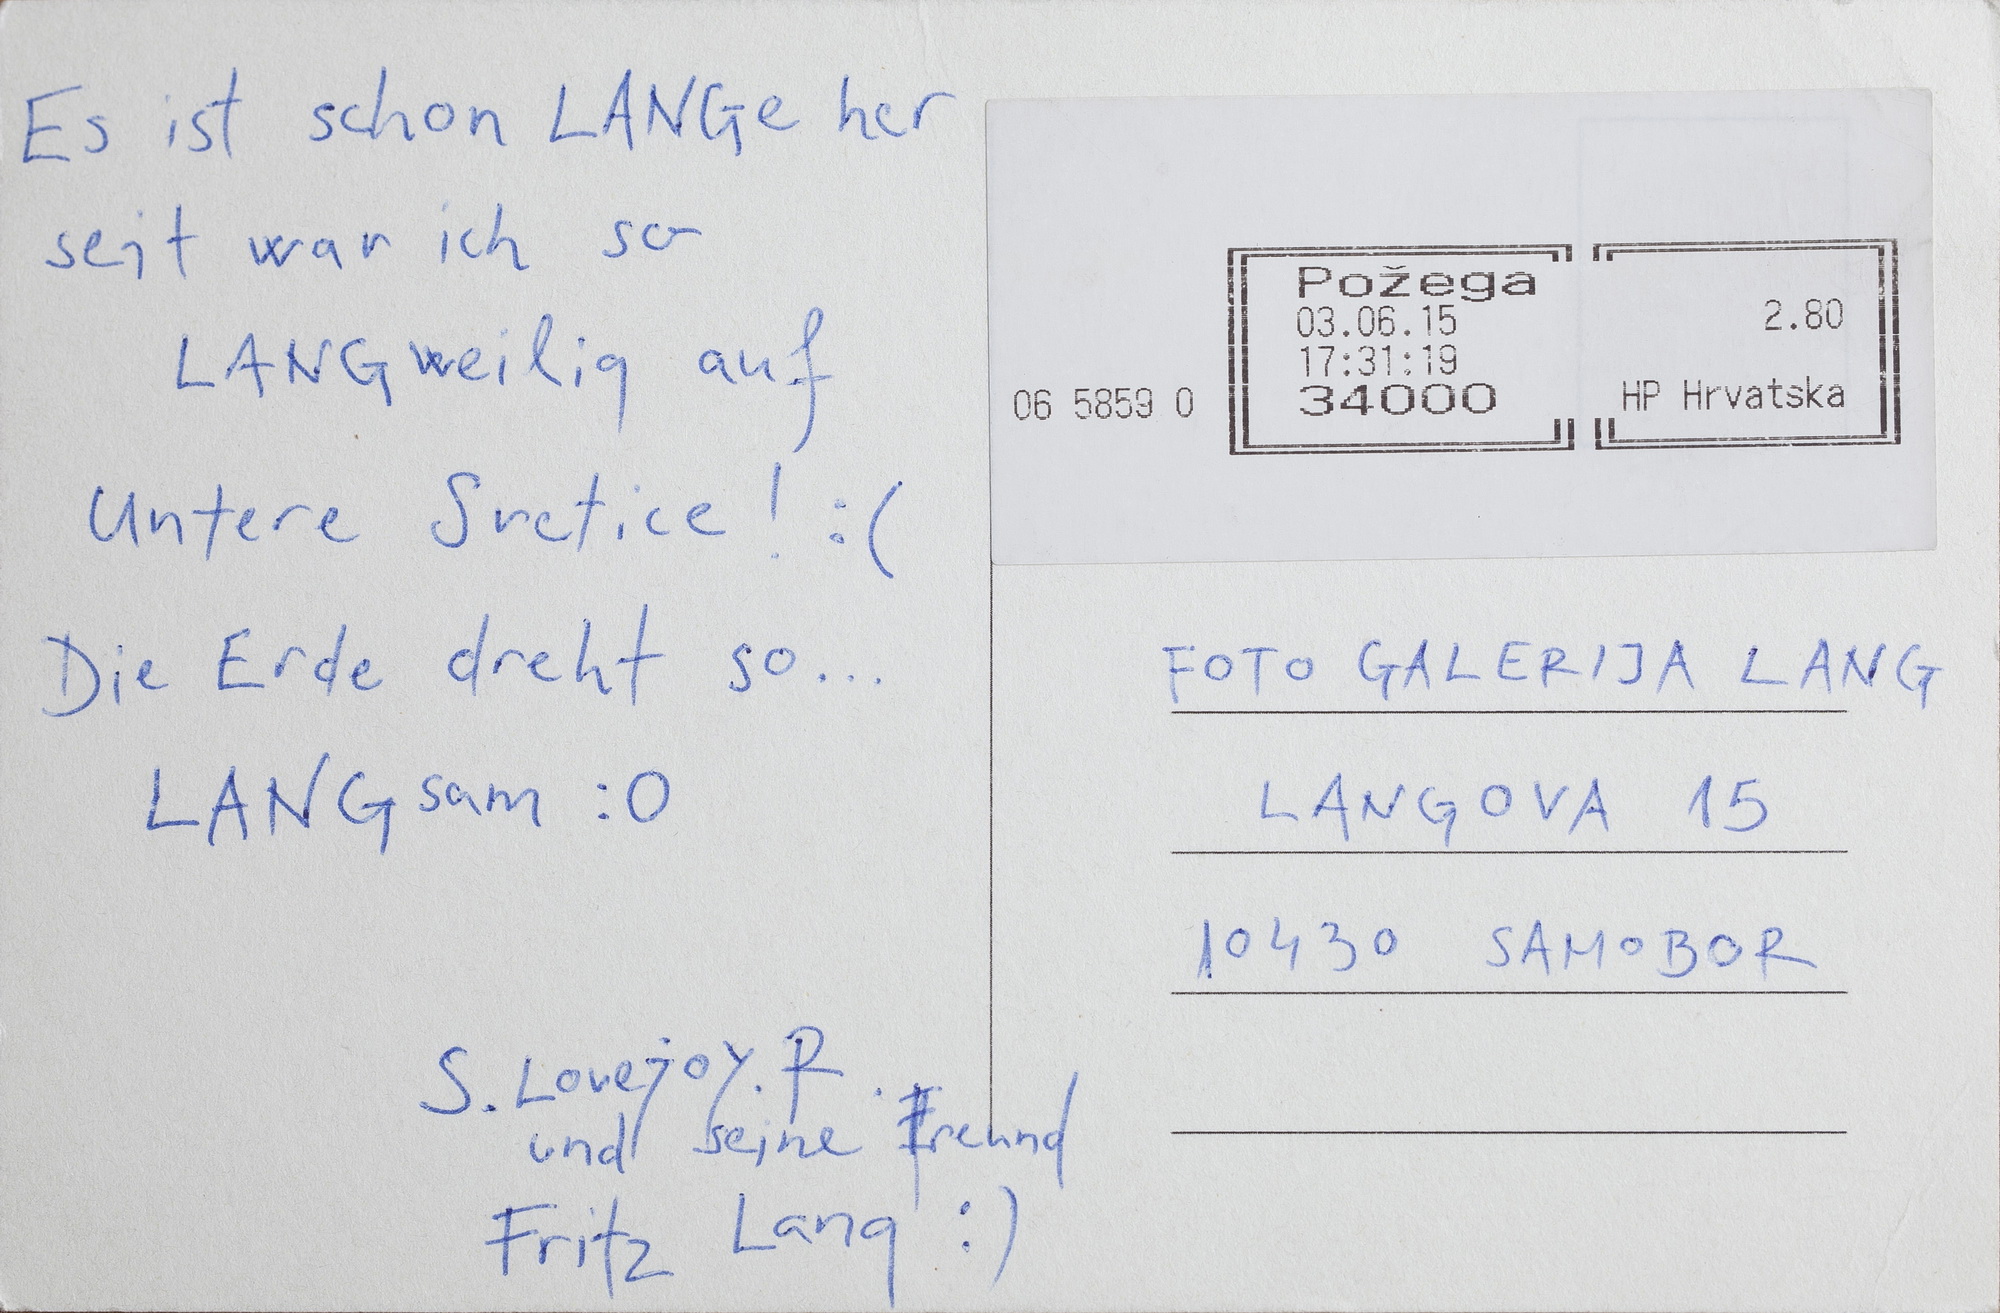 Es ist schon LANGe her
seit war ich so
LANGweilig auf
Untere Svetice! :(
Die Erde dreht so...
LANGsam :O
S. Lovejoy. R.
und seine Freund
Fritz Lang :)
Požega
03.06.15
17:31:19
34000
06 5859 0
2.80
HP Hrvatska
FOTO GALERIJA LANG
LANGOVA 15
10430 SAMOBOR